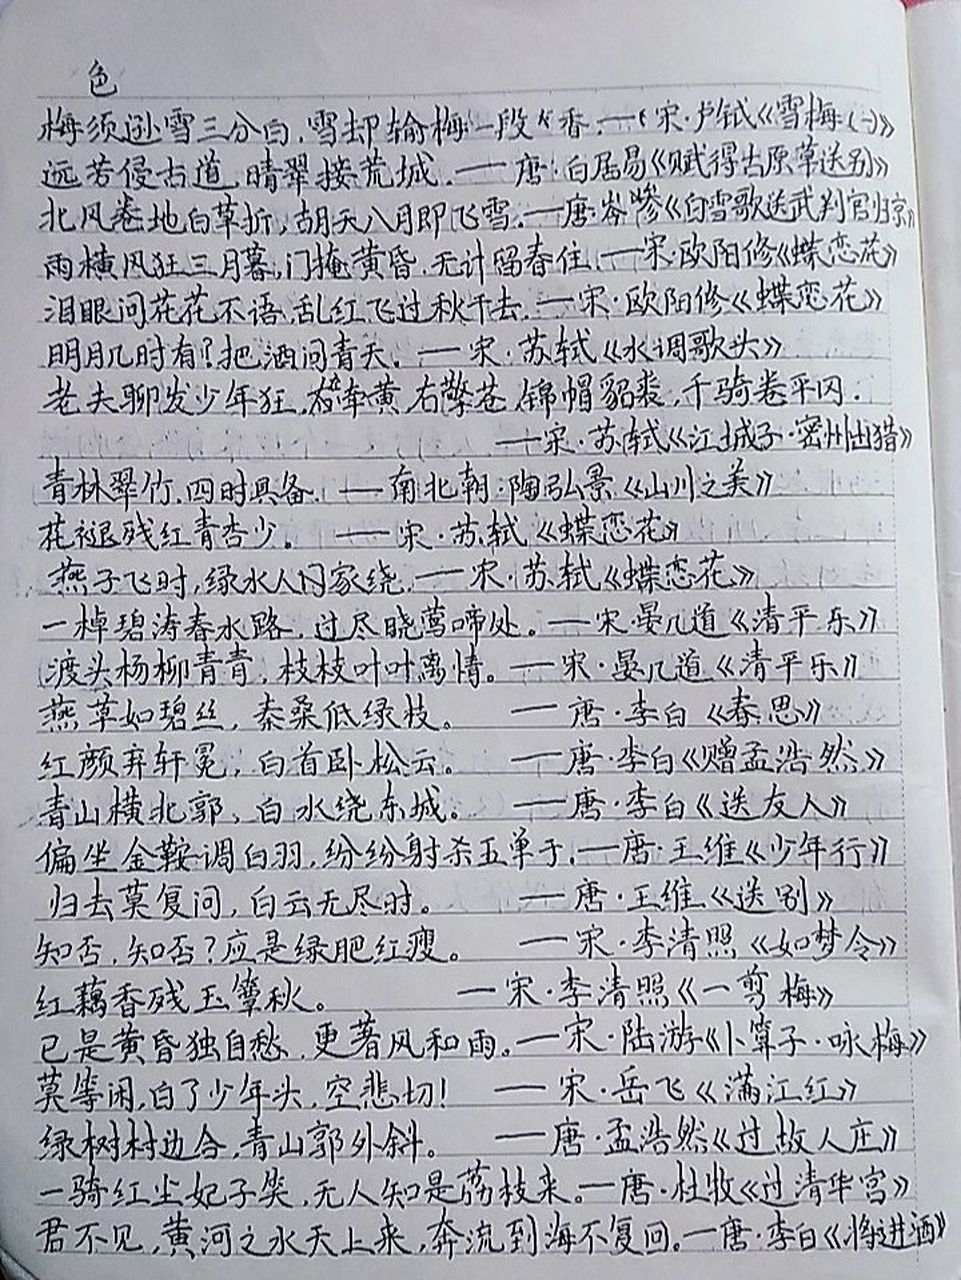 色
梅须逊雪三分白，雪却输梅一段香。——宋·卢钺《雪梅(一)》
远芳侵古道，晴翠接荒城。——唐·白居易《赋得古原草送别》
北风卷地白草折，胡天八月即飞雪。——唐·岑参《白雪歌送武判官归京》
雨横风狂三月暮，门掩黄昏，无计留春住。——宋·欧阳修《蝶恋花》
泪眼问花花不语，乱红飞过秋千去。——宋·欧阳修《蝶恋花》
明月几时有？把酒问青天。——宋·苏轼《水调歌头》
老夫聊发少年狂，左牵黄，右擎苍，锦帽貂裘，千骑卷平冈。
——宋·苏轼《江城子·密州出猎》
青林翠竹，四时具备。——南北朝·陶弘景《山川之美》
花褪残红青杏少。——宋·苏轼《蝶恋花》
燕子飞时，绿水人家绕。——宋·苏轼《蝶恋花》
一棹碧涛春水路，过尽晓莺啼处。——宋·晏几道《清平乐》
渡头杨柳青青，枝枝叶叶离情。——宋·晏几道《清平乐》
燕草如碧丝，秦桑低绿枝。——唐·李白《春思》
红颜弃轩冕，白首卧松云。——唐·李白《赠孟浩然》
青山横北郭，白水绕东城。——唐·李白《送友人》
偏坐金鞍调白羽，纷纷射杀五单于。——唐·王维《少年行》
归去莫复问，白云无尽时。——唐·王维《送别》
知否，知否？应是绿肥红瘦。——宋·李清照《如梦令》
红藕香残玉簟秋。——宋·李清照《一剪梅》
已是黄昏独自愁，更著风和雨。——宋·陆游《卜算子·咏梅》
莫等闲，白了少年头，空悲切！——宋·岳飞《满江红》
绿树村边合，青山郭外斜。——唐·孟浩然《过故人庄》
一骑红尘妃子笑，无人知是荔枝来。——唐·杜牧《过清华宫》
君不见，黄河之水天上来，奔流到海不复回。——唐·李白《将进酒》